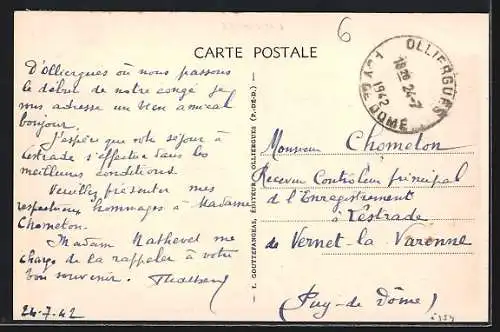 6
CARTE POSTALE
OLLIERGUES
18H 24-7
1942
PUY-DE-DOME
D'Olliergues où nous passons
le début de notre congé je
vous adresse un bien amical
bonjour.
J'espère que votre séjour à
Lestrade s'effectue dans les
meilleures conditions.
Veuillez présenter mes
respectueux hommages à Madame
Chometon.
Madame Mathevet me
charge de la rappeler à votre
bon souvenir.
24-7-42
Monsieur Chometon
Receveur Contrôleur principal
de l'Enregistrement
à Lestrade
de Vernet-la Varenne
(Puy-de Dôme)
GOUTTEFANGEAS, ÉDITEUR, OLLIERGUES (P.-DE-D.)